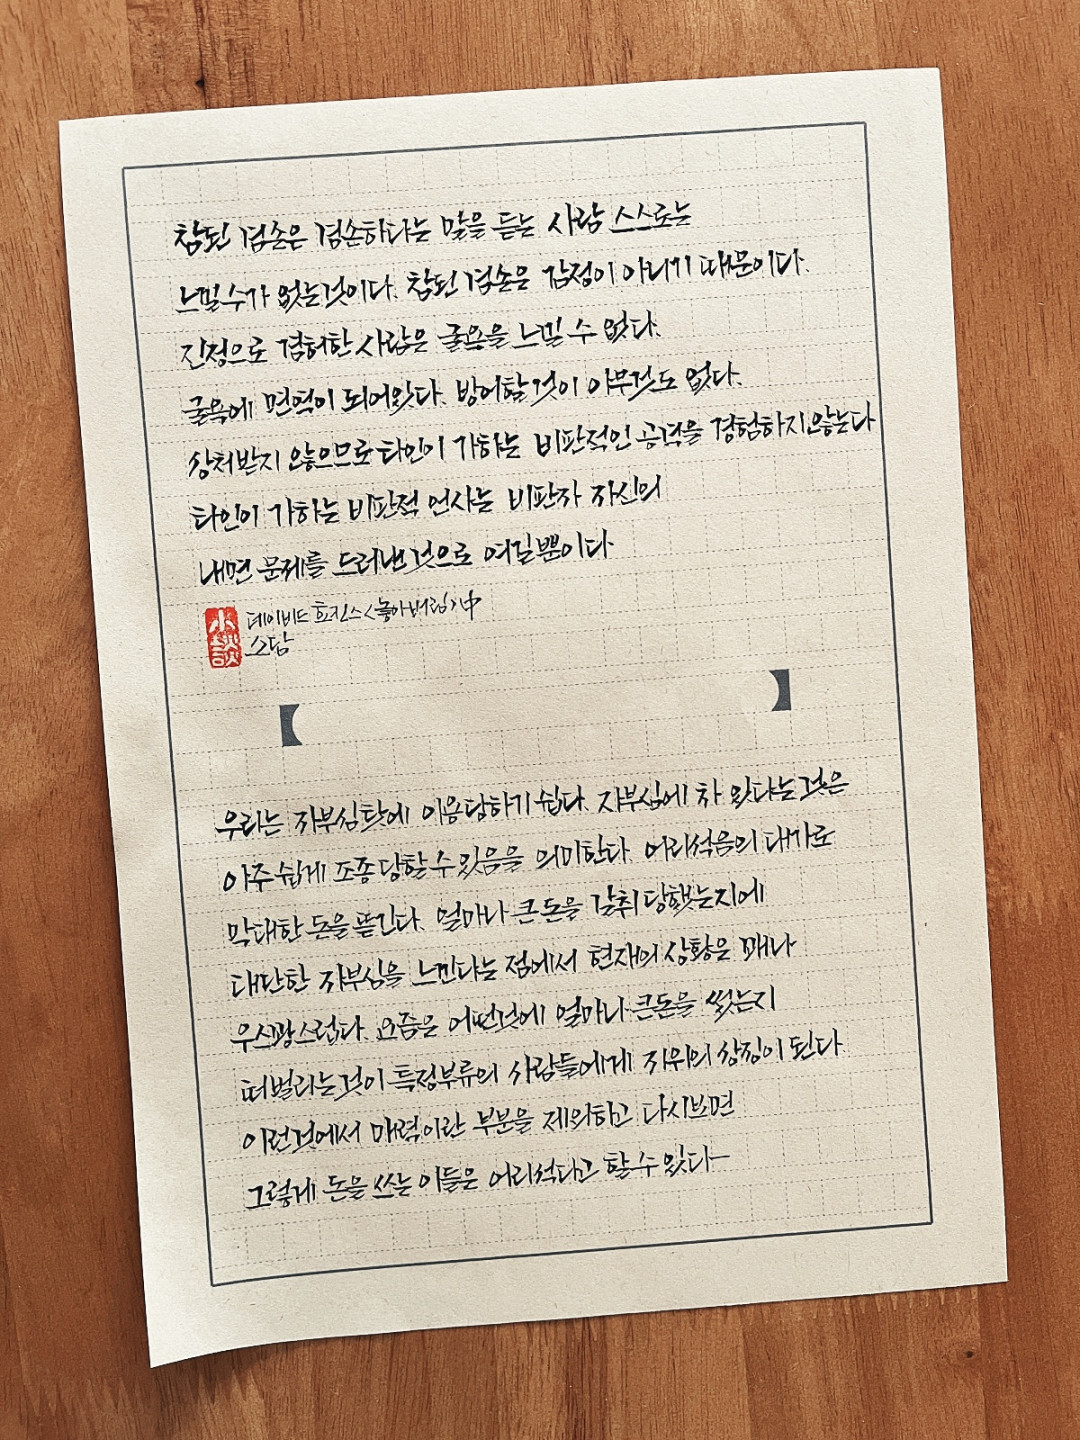 참된 겸손은 겸손하다는 말을 듣는 사람 스스로는
느낄 수가 없는 것이다. 참된 겸손은 감정이 아니기 때문이다.
진정으로 겸허한 사람은 굴욕을 느낄 수 없다.
굴욕에 면역이 되어왔다. 방어할 것이 아무것도 없다.
상처받지 않으므로 타인이 가하는 비판적인 공격을 경험하지 않는다
타인이 가하는 비판적 언사는 비판자 자신의
내면 문제를 드러낸 것으로 여길 뿐이다.
데이비드 호킨스 <놓아버림> 中
소담
小談
우리는 자부심 탓에 이용당하기 쉽다. 자부심에 차 있다는 것은
아주 쉽게 조종 당할 수 있음을 의미한다. 어리석음의 대가로
막대한 돈을 뜯긴다. 얼마나 큰 돈을 갈취 당했는지에
대단한 자부심을 느낀다는 점에서 현재의 상황은 꽤나
우스꽝스럽다. 요즘은 어떤 것에 얼마나 큰돈을 썼는지
떠벌리는 것이 특정부류의 사람들에게 지위의 상징이 된다.
이런 것에서 매력이란 부분을 제외하고 다시보면
그렇게 돈을 쓰는 이들은 어리석다고 할 수 있다